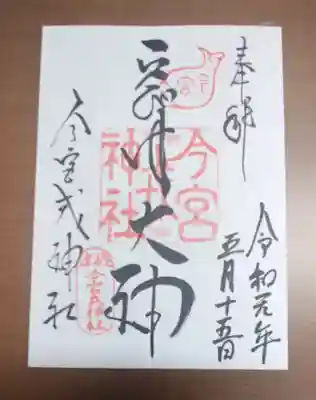 奉拝
令和元年
五月十五日
今宮戎神社
ゑびす大神
今宮戎神社
今宮戎神社